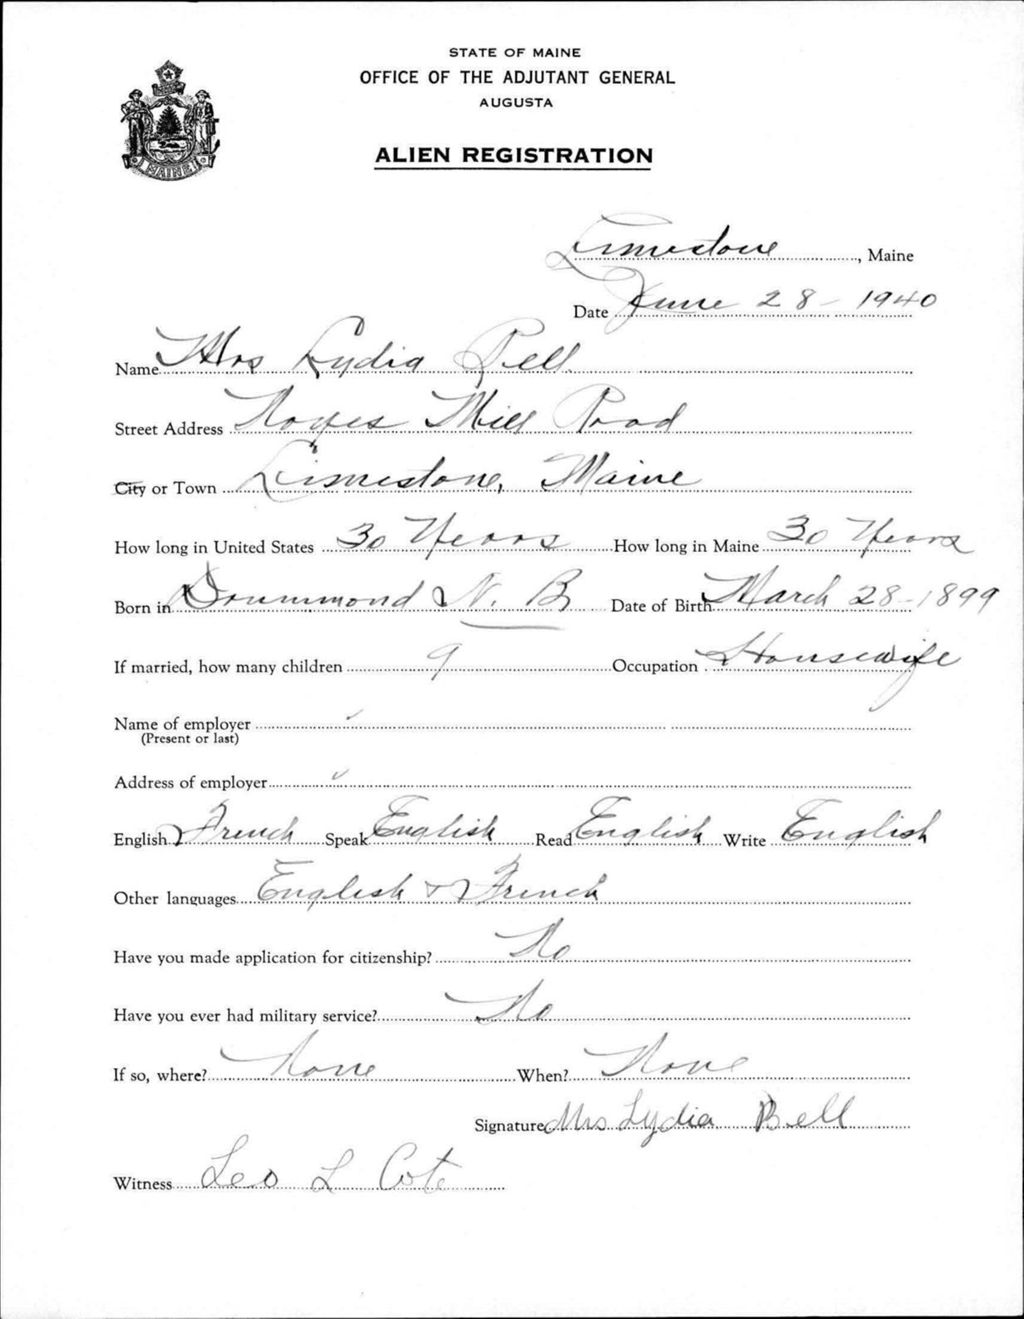 STATE OF MAINE
OFFICE OF THE ADJUTANT GENERAL
AUGUSTA
ALIEN REGISTRATION
MAINE
Limestone, Maine
Date June 28 - 1940
Name Mrs Lydia Bell
Street Address Noyes Mill Road
City or Town Limestone, Maine
How long in United States 30 Years How long in Maine 30 Years
Born in Drummond N. B. Date of Birth March 28-1899
If married, how many children 9 Occupation Housewife
Name of employer
(Present or last)
Address of employer
English French Speak English Read English Write English
Other languages English & French
Have you made application for citizenship? No
Have you ever had military service? No
If so, where? None When? None
Signature Mrs Lydia Bell
Witness Leo L Cote